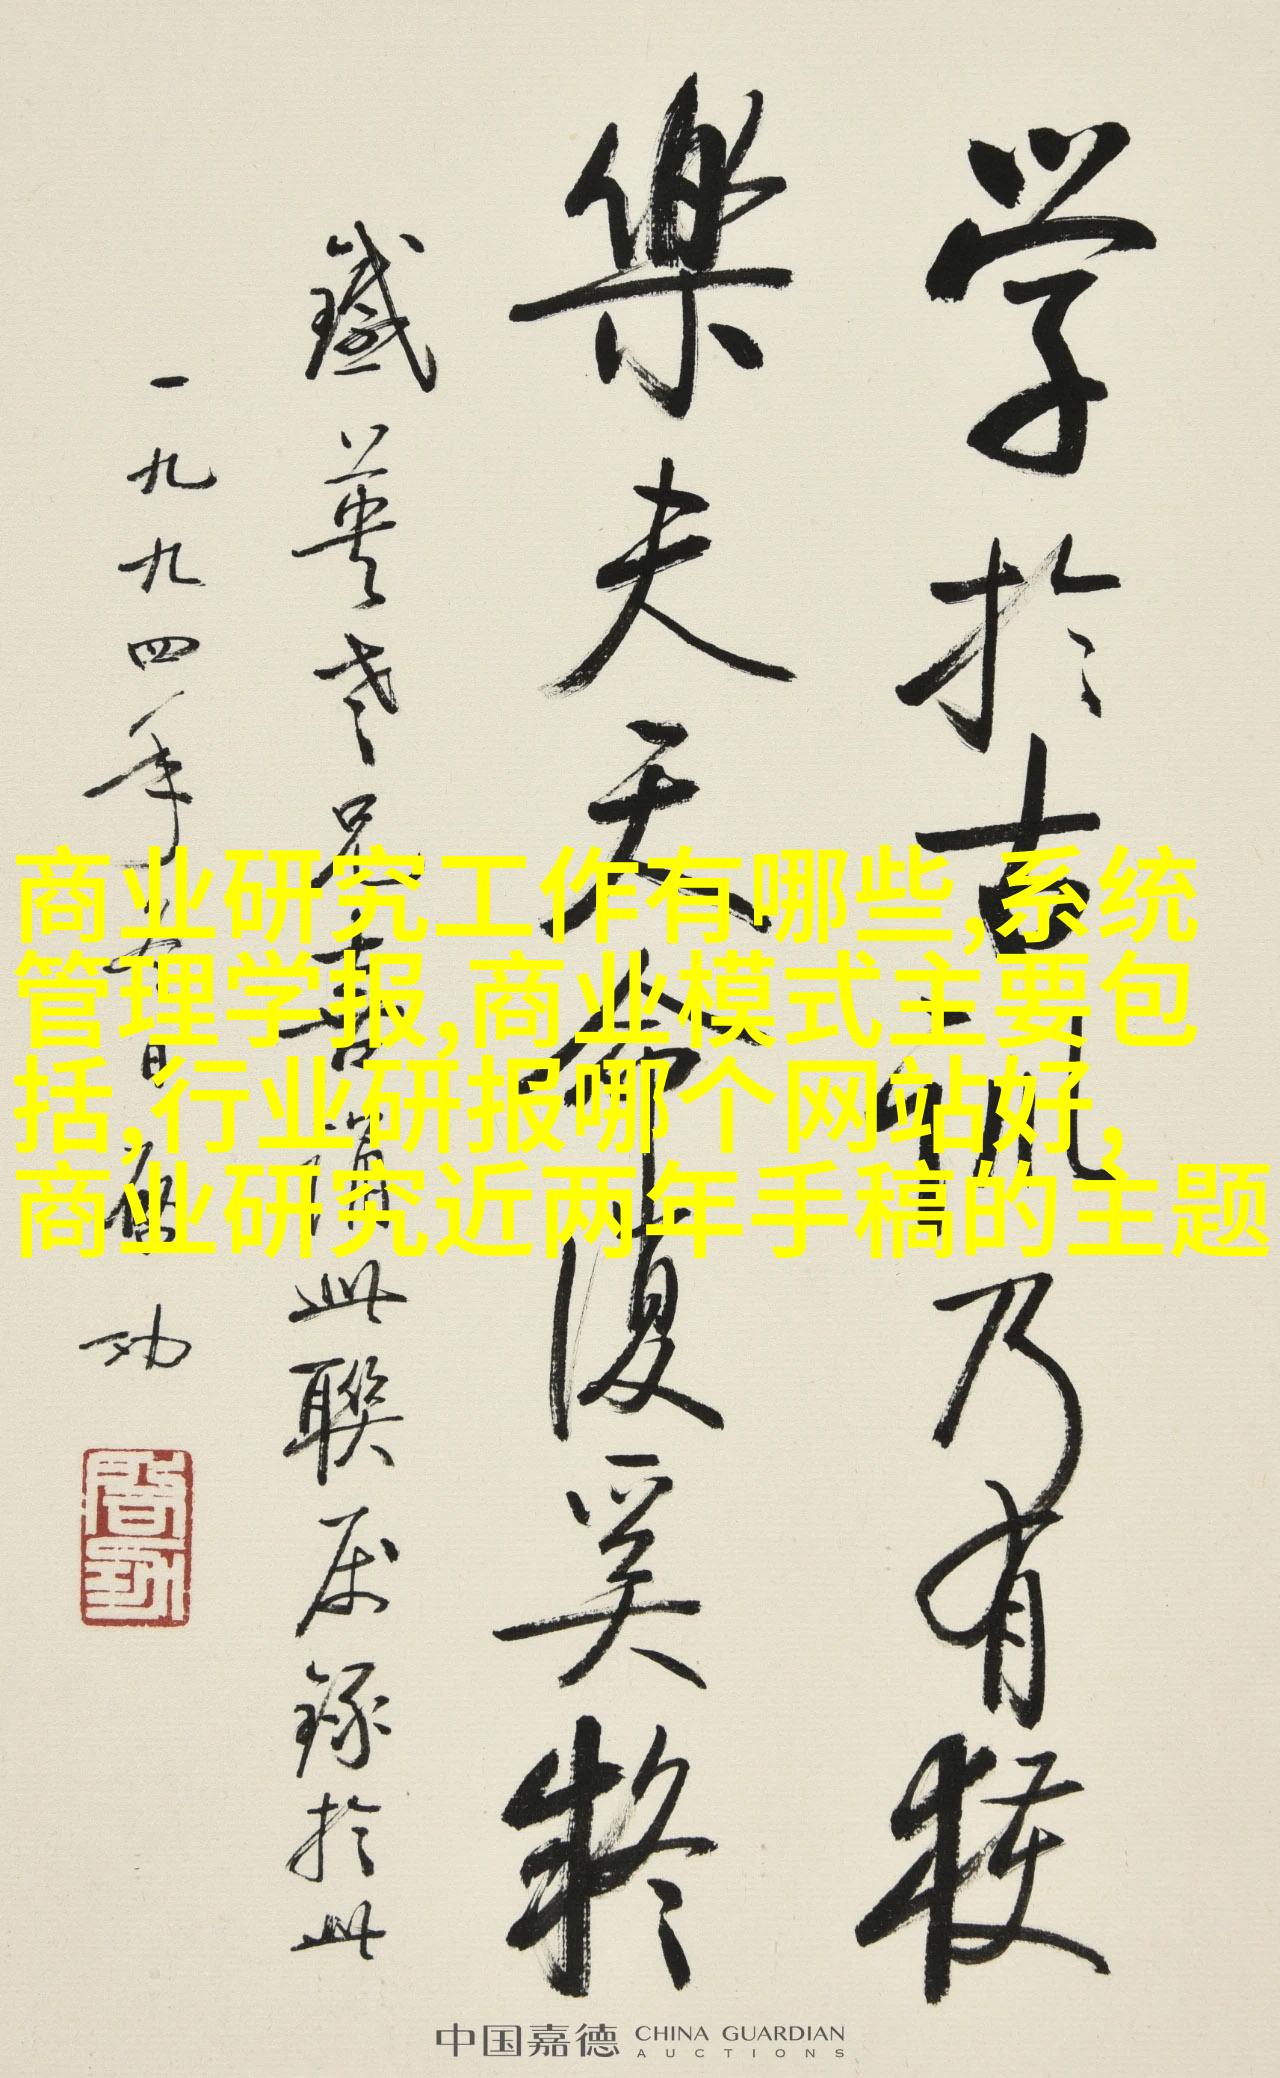 学於古訓乃有獲
樂夫天命復奚疑
鐵英老兄喜誦此聯属録於此
一九九四年春日啟功
商业研究工作有哪些,系统
管理学报,商业模式主要包
括,行业研报哪个网站好,
商业研究近两年手稿的主题
中国嘉德 CHINA GUARDIAN
AUCTIONS